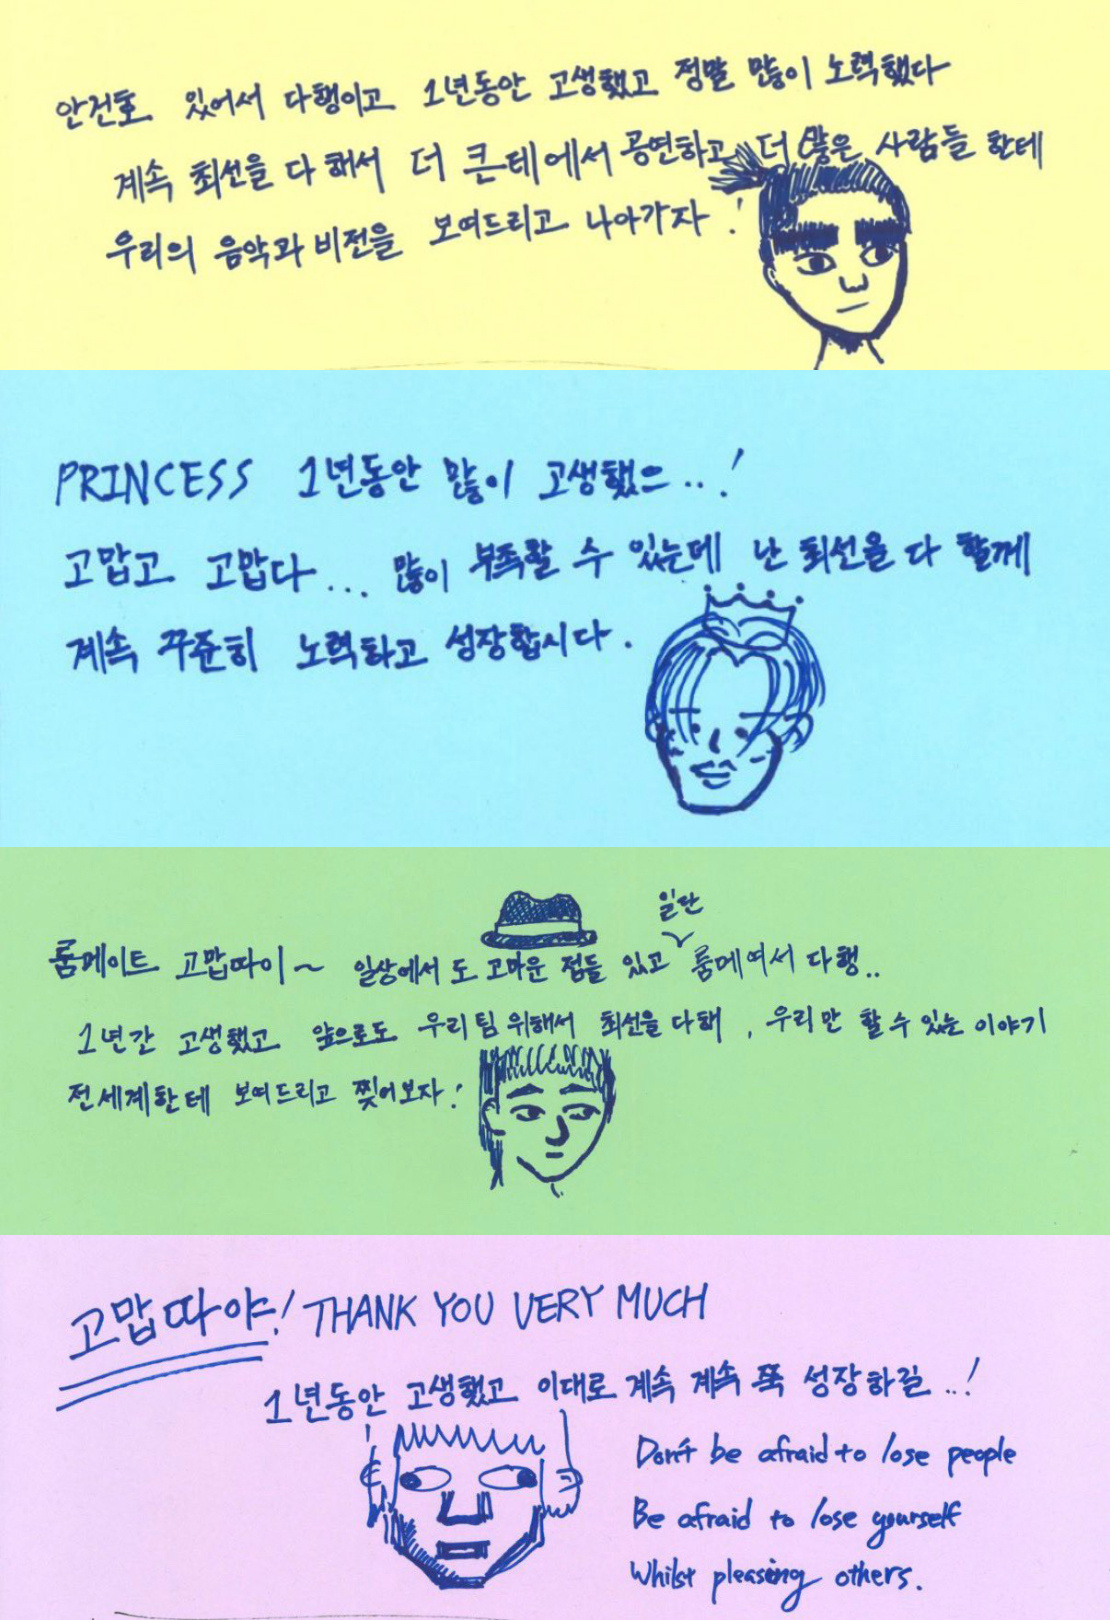 안건호 있어서 다행이고 1년동안 고생했고 정말 많이 노력했다
계속 최선을 다 해서 더 큰데에서 공연하고 더 많은 사람들 한테
우리의 음악과 비전을 보여드리고 나아가자!
PRINCESS 1년동안 많이 고생했으..!
고맙고 고맙다... 많이 부족할 수 있는데 난 최선을 다 할께
계속 꾸준히 노력하고 성장합시다.
일단
룸메이트 고맙따이~ 일상에서 도 고마운 점들 있고 룸메여서 다행..
1년간 고생했고 앞으로도 우리팀 위해서 최선을 다해, 우리만 할 수 있는 이야기
전세계한테 보여드리고 찢어보자!
고맙따야! THANK YOU VERY MUCH
1년동안 고생했고 이대로 계속 계속 쭉 성장하길..!
Don't be afraid to lose people
Be afraid to lose yourself
Whilst pleasing others.